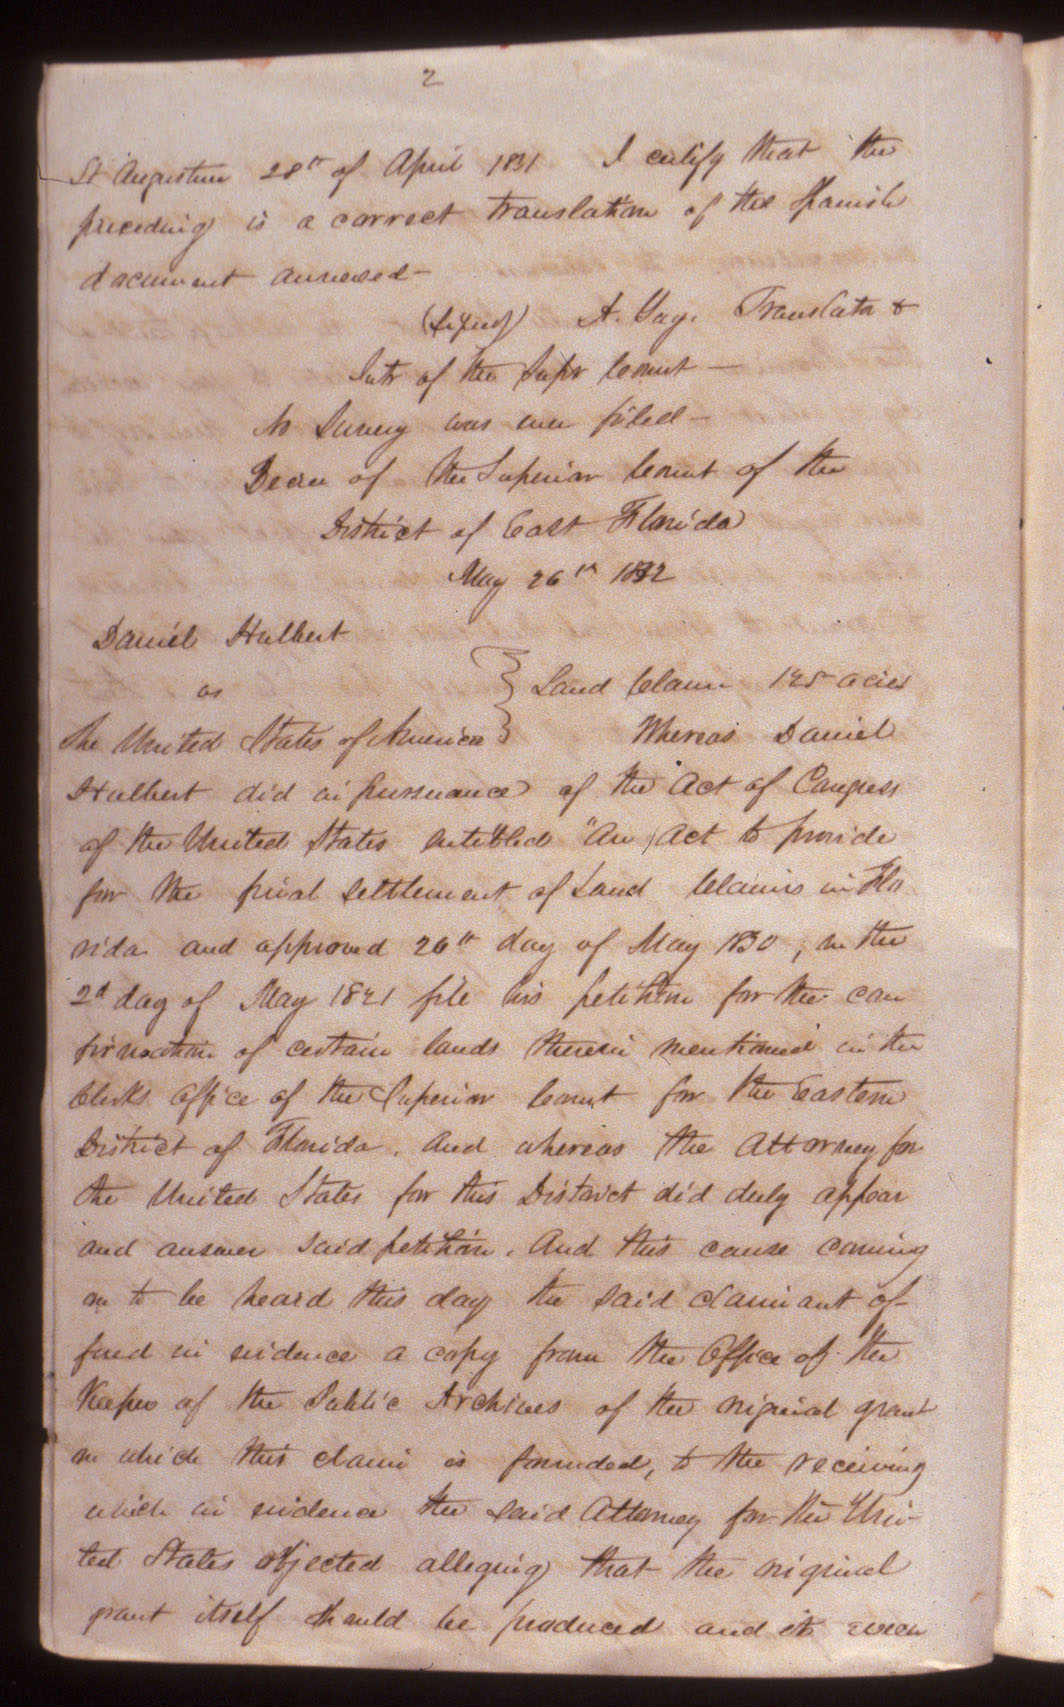 2
St Augustine 28th of April 1831 I certify that the
preceding is a correct translation of the Spanish
document annexed —
(Signed) A. Gay. Translator &
Intr of the Supr Court —
No Survey was ever filed —
Decree of the Superior Court of the
District of East Florida
May 26th 1832
Daniel Hulbert
vs
The United States of America
Land Claim 125 acres
Whereas Daniel
Hulbert did in pursuance of the Act of Congress
of the United States entitled "An Act to provide
for the final settlement of Land Claims in Flo
rida and approved 26th day of May 1830, on the
2d day of May 1821 file his petition for the con
firmation of certain lands therein mentioned in the
Clerks Office of the Superior Court for the Eastern
District of Florida. And whereas the Attorney for
the United States for this District did duly appear
and answer said petition. And this cause coming
on to be heard this day the said claimant of-
fered in evidence a copy from the Office of the
Keeper of the Public Archives of the original grant
on which this claim is founded, to the receiving
which in evidence the said Attorney for the Uni-
ted States objected alleging that the original
grant itself should be produced and its